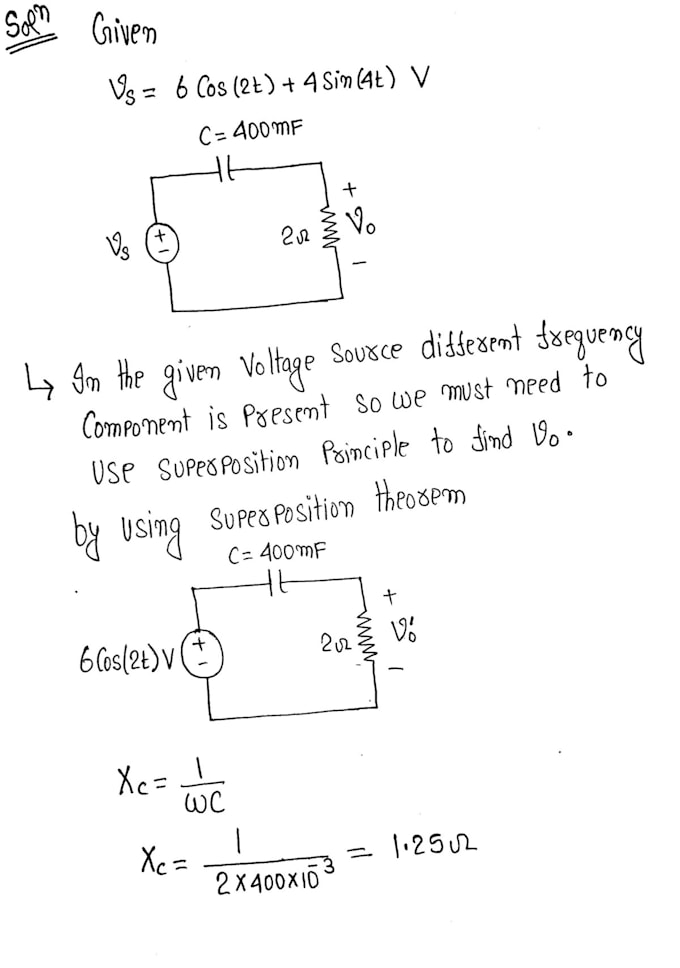 Solⁿ Given
Vs = 6 Cos (2t) + 4 Sin (4t) V
C = 400mF
+
Vs + − 2Ω Vo
−
↳ In the given Voltage Source different frequency
Component is Present so we must need to
use superposition Principle to find Vo.
by using superposition theorem
C = 400mF
+
6 Cos(2t) V + − 2Ω Vo'
−
Xc = 1/ωC
Xc = 1/2×400×10⁻³ = 1.25Ω